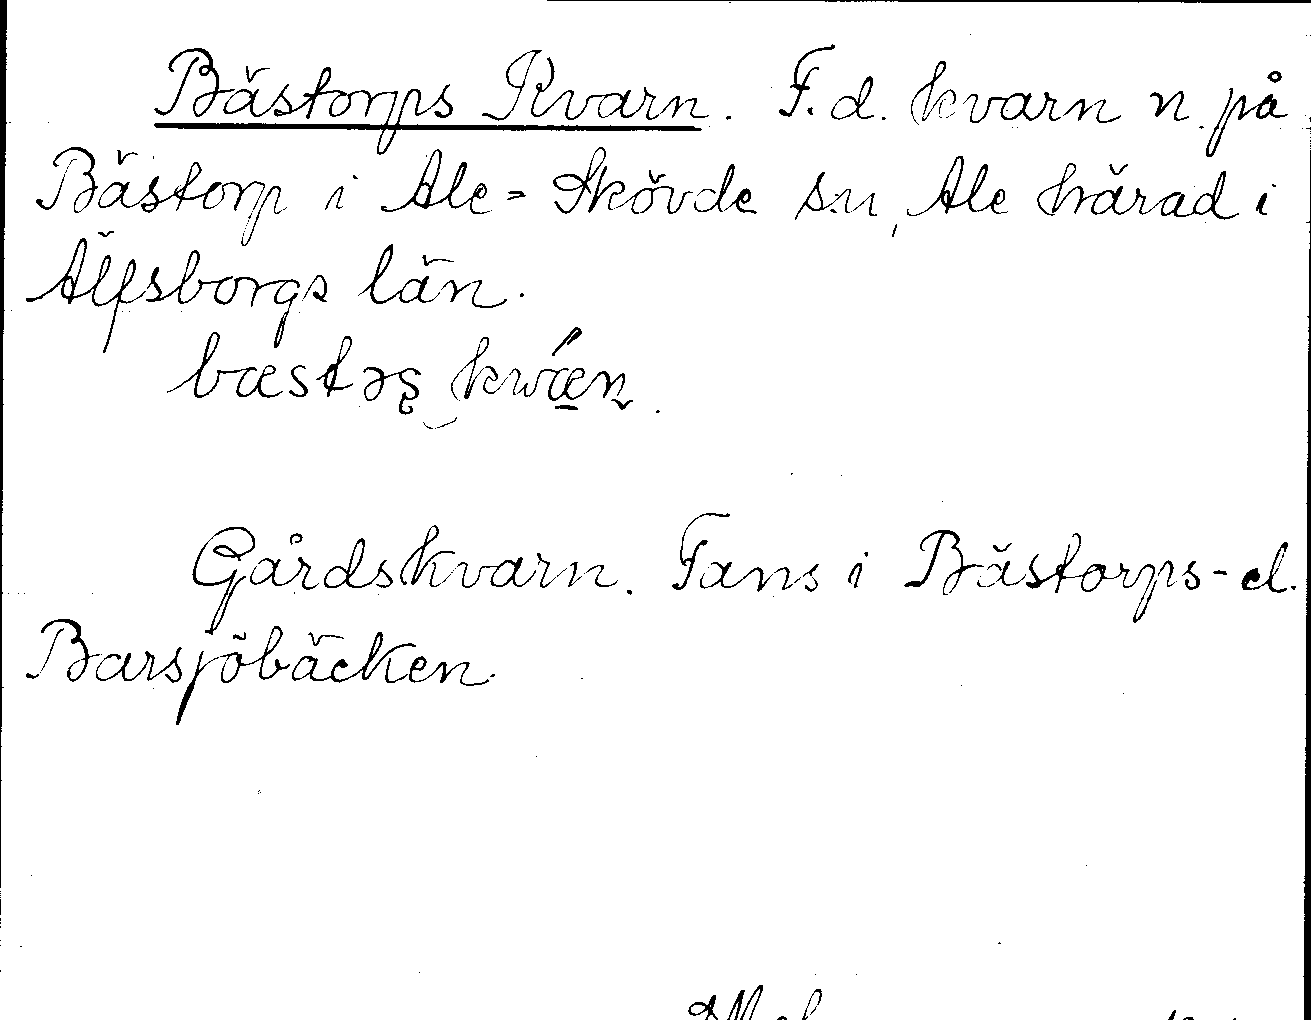 Bästorps Kvarn. F.d. kvarn n. på
Bästorp i Ale-Skövde sn, Ale härad i
Älfsborgs län.
bæstəʂ kwǽ̠ɳ.
Gårdskvarn. Fans i Bästorps- el.
Barsjöbäcken.